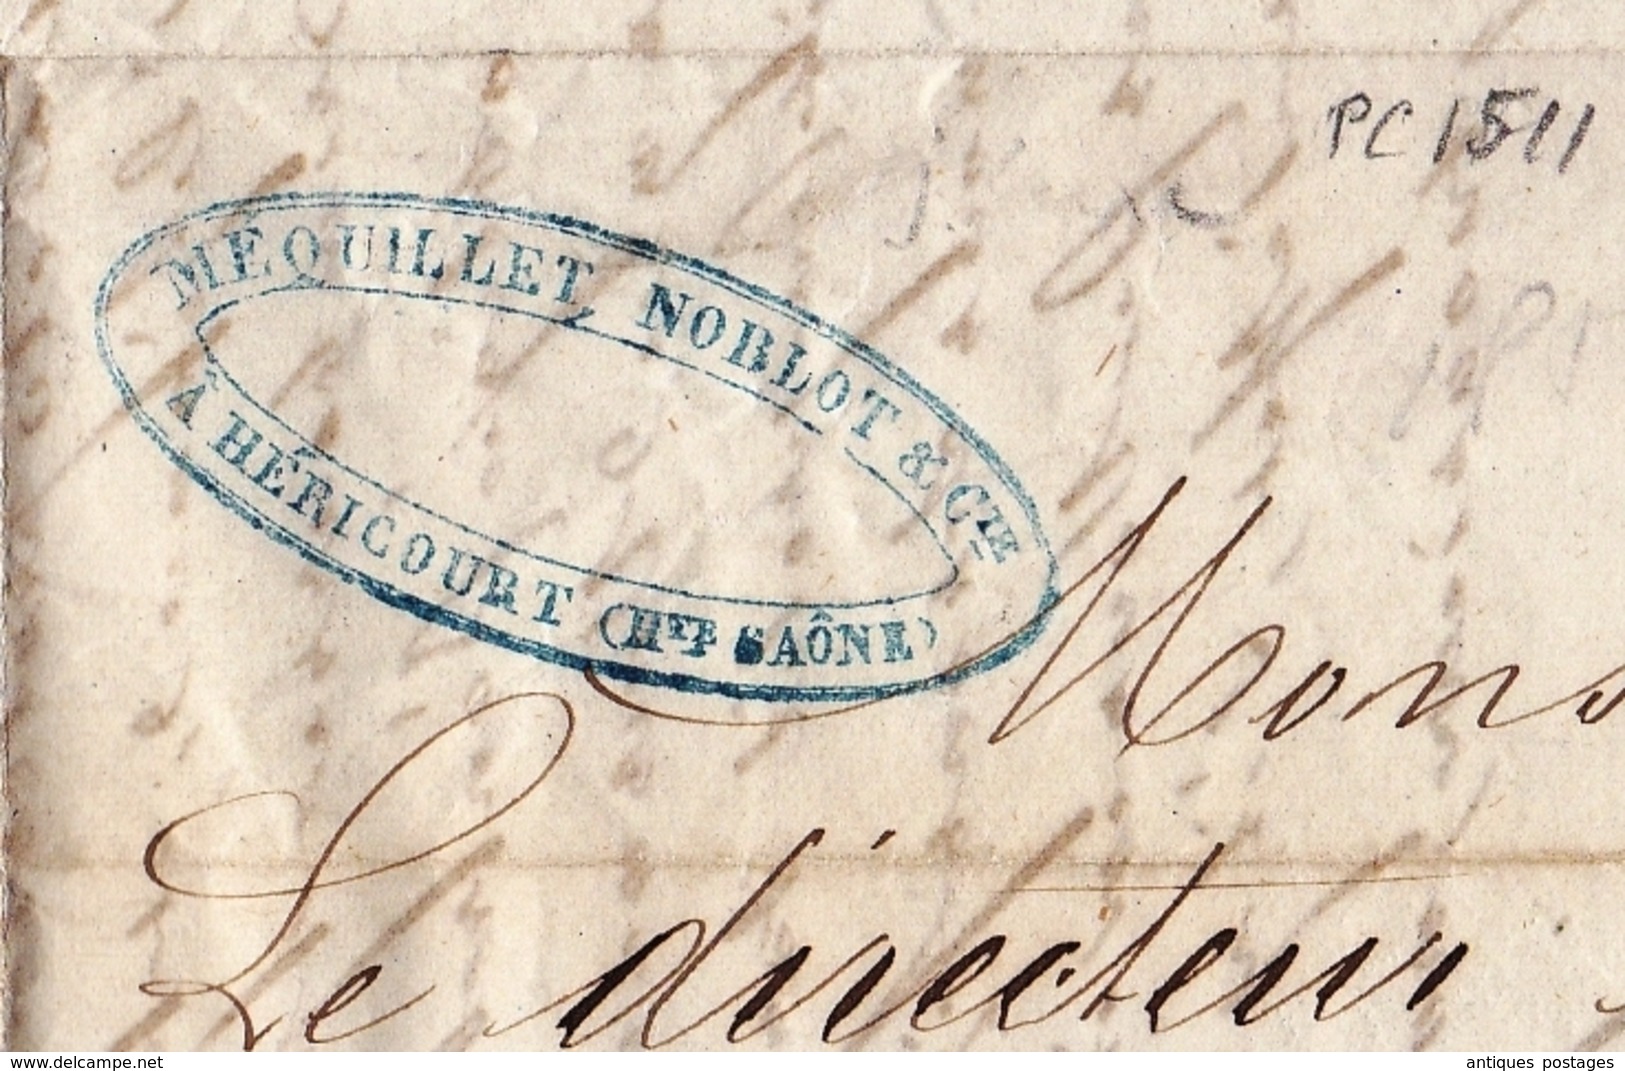 PC 1511
MÉQUILLET, NOBLOT & Cie
À HÉRICOURT (Hte SAÔNE)
Mons
Le directeur
www.delcampe.net
antiques postages